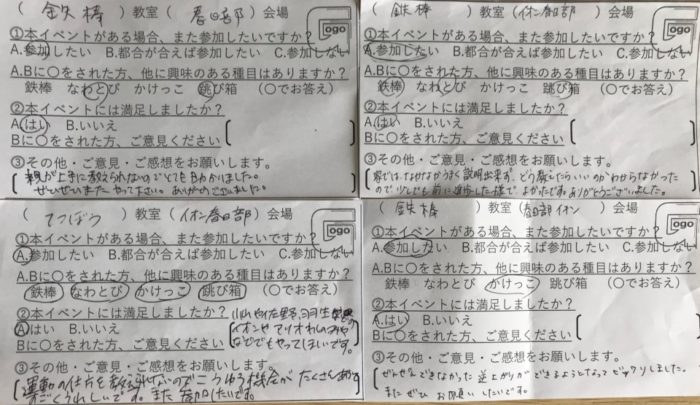 ( 鉄棒 )教室 ( 春日部 )会場
ogo
①本イベントがある場合、また参加したいですか?
A.参加したい B.都合が合えば参加したい C.参加しない
A.Bに〇をされた方、他に興味のある種目はありますか?
鉄棒 なわとび かけっこ 跳び箱 (〇でお答え)
②本イベントには満足しましたか?
A.はい B.いいえ
Bに〇をされた方、ご意見ください
③その他・ご意見・ご感想をお願いします。
親が上手に教えられないのでとても助かりました。
ぜひぜひまたやって下さい。ありがとうございました。
( 鉄棒 )教室 (イオン春日部 )会場
ogo
①本イベントがある場合、また参加したいですか?
A.参加したい B.都合が合えば参加したい C.参加しない
A.Bに〇をされた方、他に興味のある種目はありますか?
鉄棒 なわとび かけっこ 跳び箱 (〇でお答え)
②本イベントには満足しましたか?
A.はい B.いいえ
Bに〇をされた方、ご意見ください
③その他・ご意見・ご感想をお願いします。
家ではなかなかうまく説明出来ず、どう教えたらいいのかわからなかった
ので少しでも前に進歩した様でよかったです。ありがとうございました。
( てつぼう )教室 (イオン春日部 )会場
①本イベントがある場合、また参加したいですか?
A.参加したい B.都合が合えば参加したい C.参加しない
A.Bに〇をされた方、他に興味のある種目はありますか?
鉄棒 なわとび かけっこ 跳び箱 (〇でお答え)
②本イベントには満足しましたか?
A.はい B.いいえ
Bに〇をされた方、ご意見ください
小山や佐野、羽生
イオンや
などでもやってほしいです。
③その他・ご意見・ご感想をお願いします。
運動の仕方を教えれないのでこうゆう機会がたくさんあると
すごくうれしいです。また参加したいです。
( 鉄棒 )教室 (春日部イオン )会場
①本イベントがある場合、また参加したいですか?
A.参加したい B.都合が合えば参加したい C.参加しない
A.Bに〇をされた方、他に興味のある種目はありますか?
鉄棒 なわとび かけっこ 跳び箱 (〇でお答え)
②本イベントには満足しましたか?
A.はい B.いいえ
Bに〇をされた方、ご意見ください
③その他・ご意見・ご感想をお願いします。
ぜんぜんできなかった逆上がりができるようになってビックリしました。
またぜひお願いしたいです。